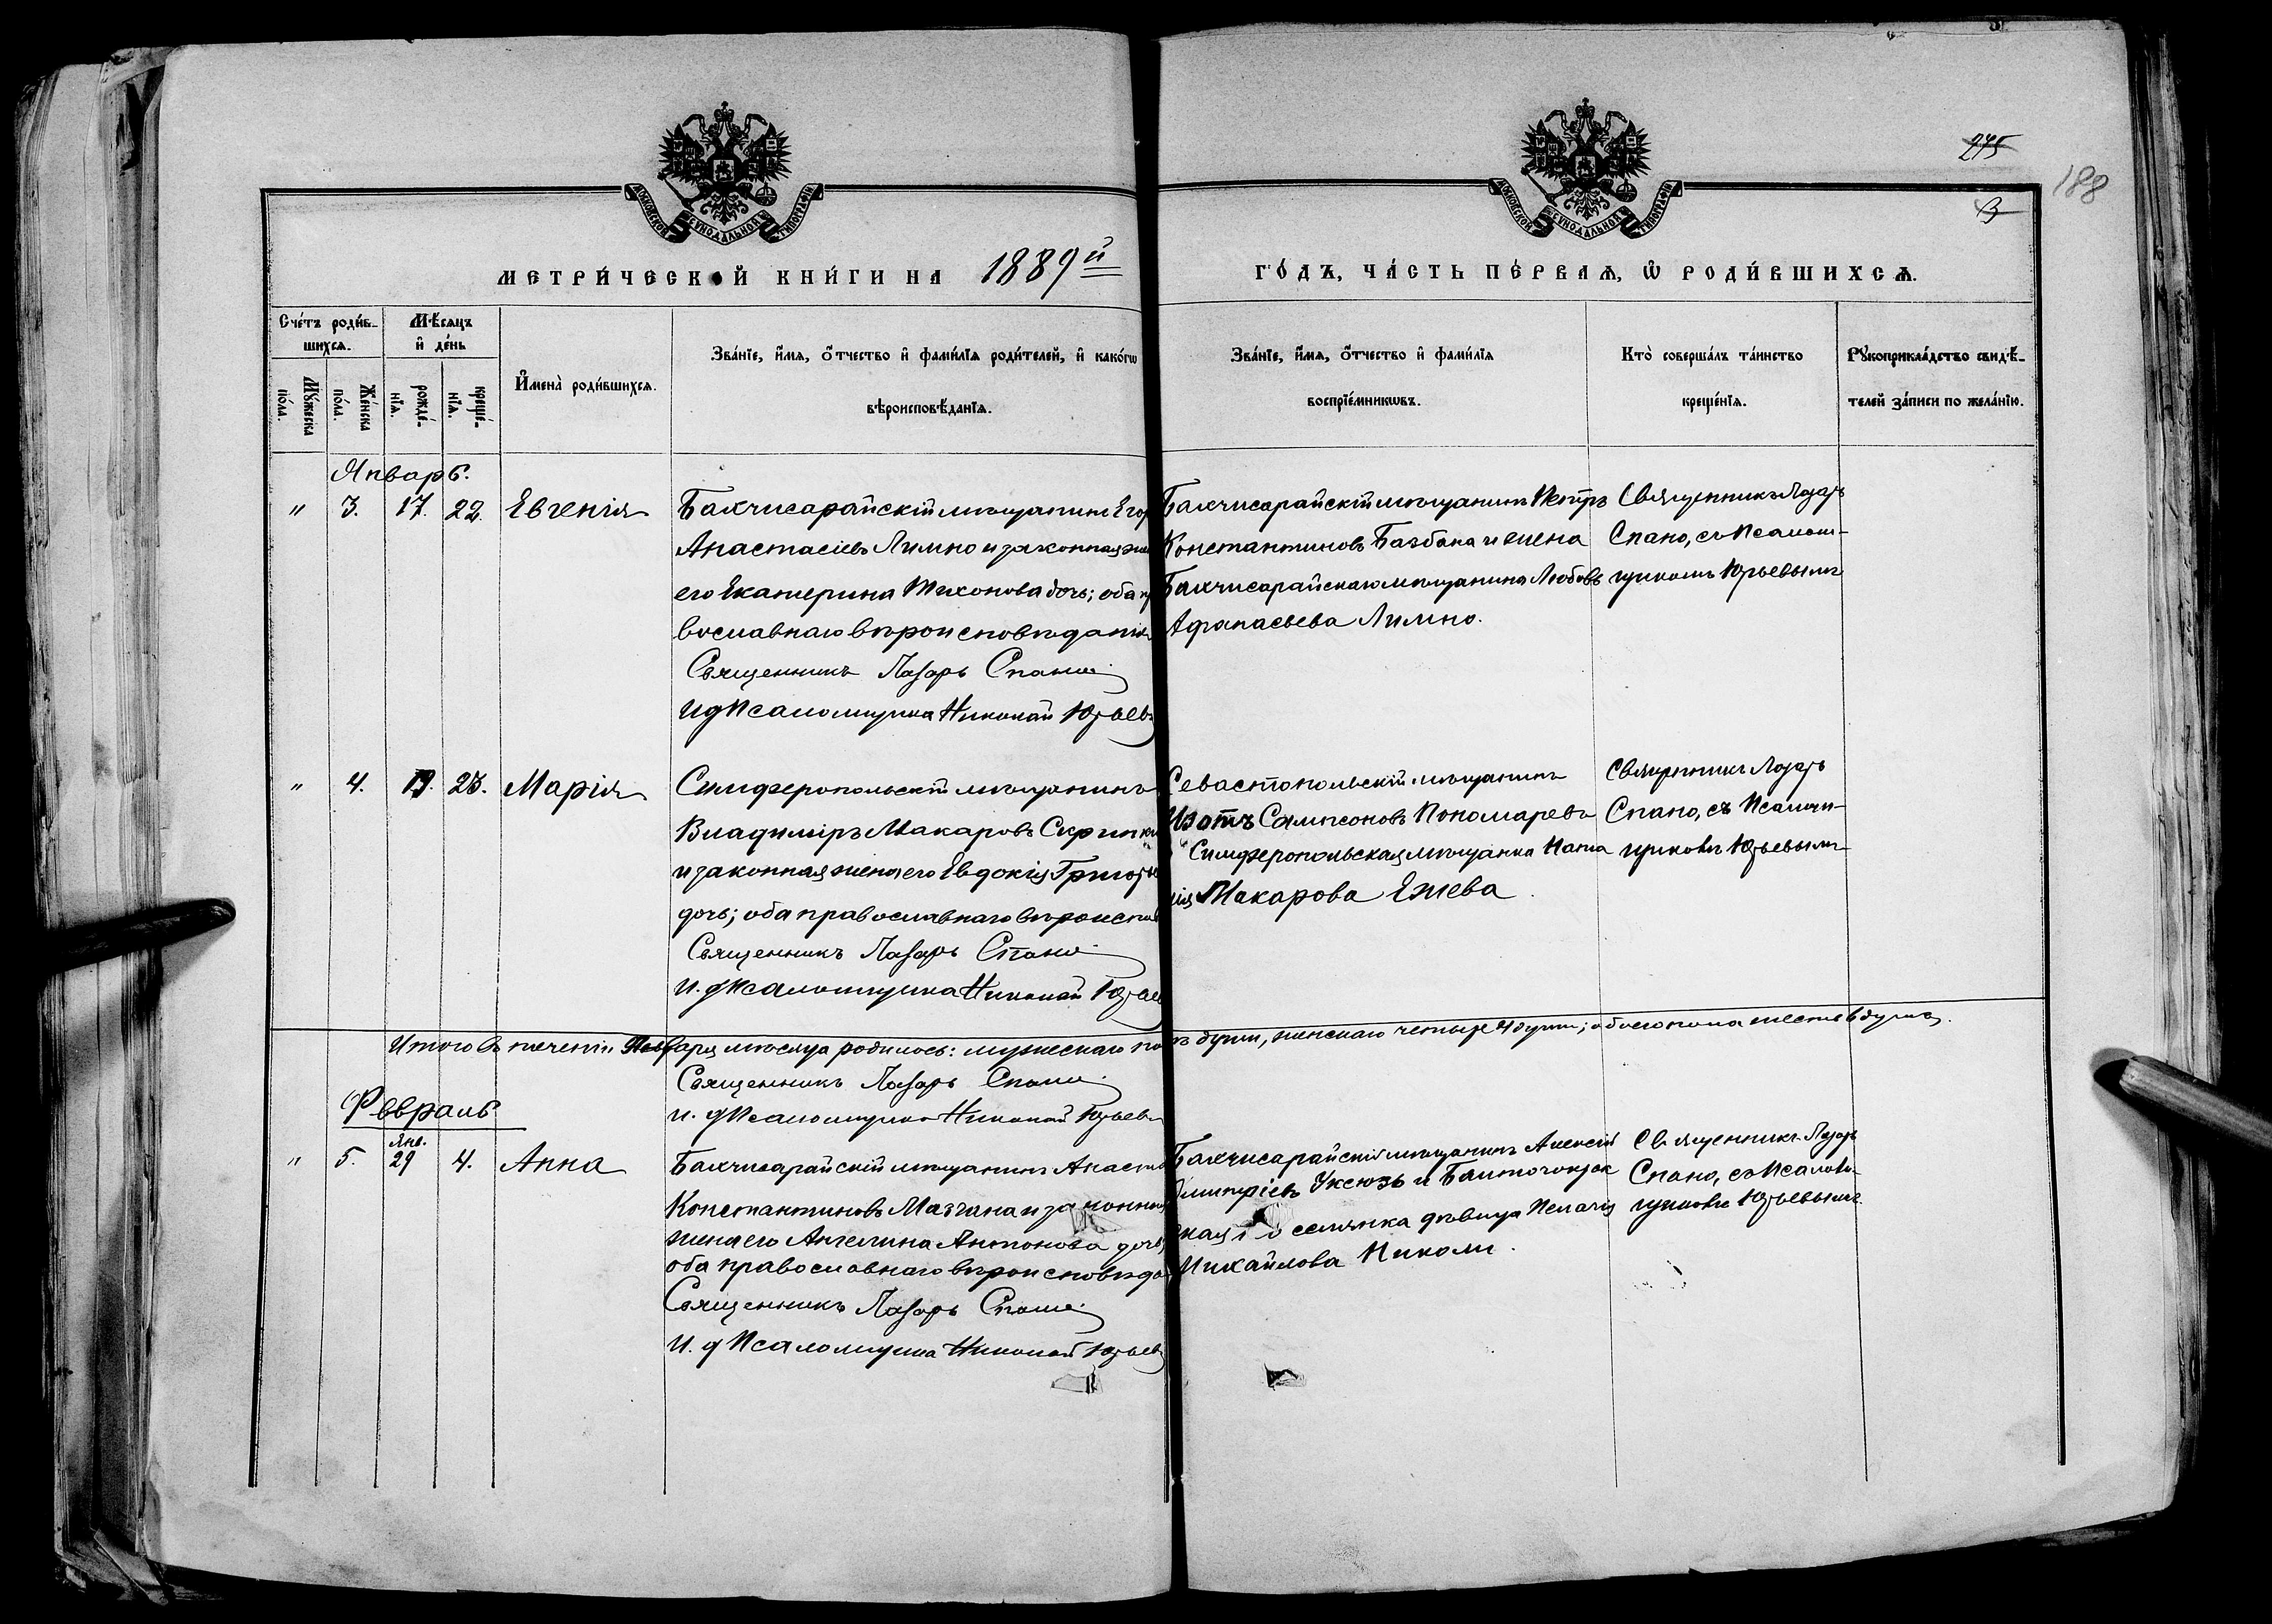 275
188
3
МОСКОВСКОЙ СѴНОДАЛЬНОЙ ТИПОГРАФІИ
МОСКОВСКОЙ СѴНОДАЛЬНОЙ ТИПОГРАФІИ
МЕТРИ́ЧЕСКОЙ КНИ́ГИ НА 1889й ГО́ДЪ, ЧА́СТЬ ПЕ́РВАѦ, Ѽ РОДИ́ВШИХСѦ.
Сче́тъ роди́в-
шихсѧ.
Мѣ́сѧцъ
и҆ де́нь
Мꙋ́жеска
по́ла.
Же́нска
по́ла.
рожде́-
нїѧ.
креще́-
нїѧ.
И҆мена̀ роди́вшихсѧ.
Зва́нїе, и҆́мѧ, ѻ҆́тчество и҆ фами́лїѧ роди́телей, и҆ како́гѡ
вѣроисповѣ́данїѧ.
Зва́нїе, и҆́мѧ, ѻ҆́тчество и҆ фами́лїѧ
воспрїе́мникѡвъ.
Кто̀ соверша́лъ та́инство
креще́нїѧ.
Рꙋкоприкла́дство свидѣ́-
телей за́писи по жела́нїю.
Январь.
" 3. 17. 22. Евгенія
Бахчисарайскій мѣщанинъ Егор
Анастасіевъ Лимно и законная же
его Екатерина Тихонова дочь; оба пр
вославнаго вѣроисповѣданія
Священникъ Лазарь Спано
И д Псаломщика Николай Юрьевъ
Бахчисарайскій мѣщанинъ Петръ
Константиновъ Базбана и жена
Бахчисарайскаго мѣщанина Любовь
Афанасьева Лимно.
Священникъ Лазарь
Спано, съ Псалом-
щикомъ Юрьевымъ
" 4. 19. 23. Марія
Симферопольскій мѣщанинъ
Владиміръ Макаровъ Скрипк
и законная жена его Евдокія Григорь
дочь; оба православнаго вѣроиспов
Священникъ Лазарь Спано
И. д Псаломщика Николай Юрьев
Севастопольскій мѣщанинъ
Изотъ Сампсоновъ Пономаревъ
Симферопольская мѣщанка Ната
лія Макарова Ежева.
Священникъ Лазарь
Спано, съ Псалом-
щикомъ Юрьевымъ
Итого въ теченіи Января мѣсяца родилось: мужескаго по души, женскаго четыре 4 души; обоего пола шесть 6 душъ.
Священникъ Лазарь Спано
И. д Псаломщика Николай Юрьевъ
Февраль
" 5. Янв. 29 4. Анна
Бахчисарайскій мѣщанинъ Анаста
Константиновъ Мазгана и законная
жена его Ангелина Антонова дочь
оба православнаго вѣроисповѣда
Священникъ Лазарь Спано
И. д Псаломщика Николай Юрьевъ
Бахчисарайскій мѣщанинъ Алексій
Дмитріевъ Уксюзъ и
ская селянка дѣвица Пелагія
Михайлова Николи.
Священникъ Лазарь
Спано, съ Псалом-
щикомъ Юрьевымъ